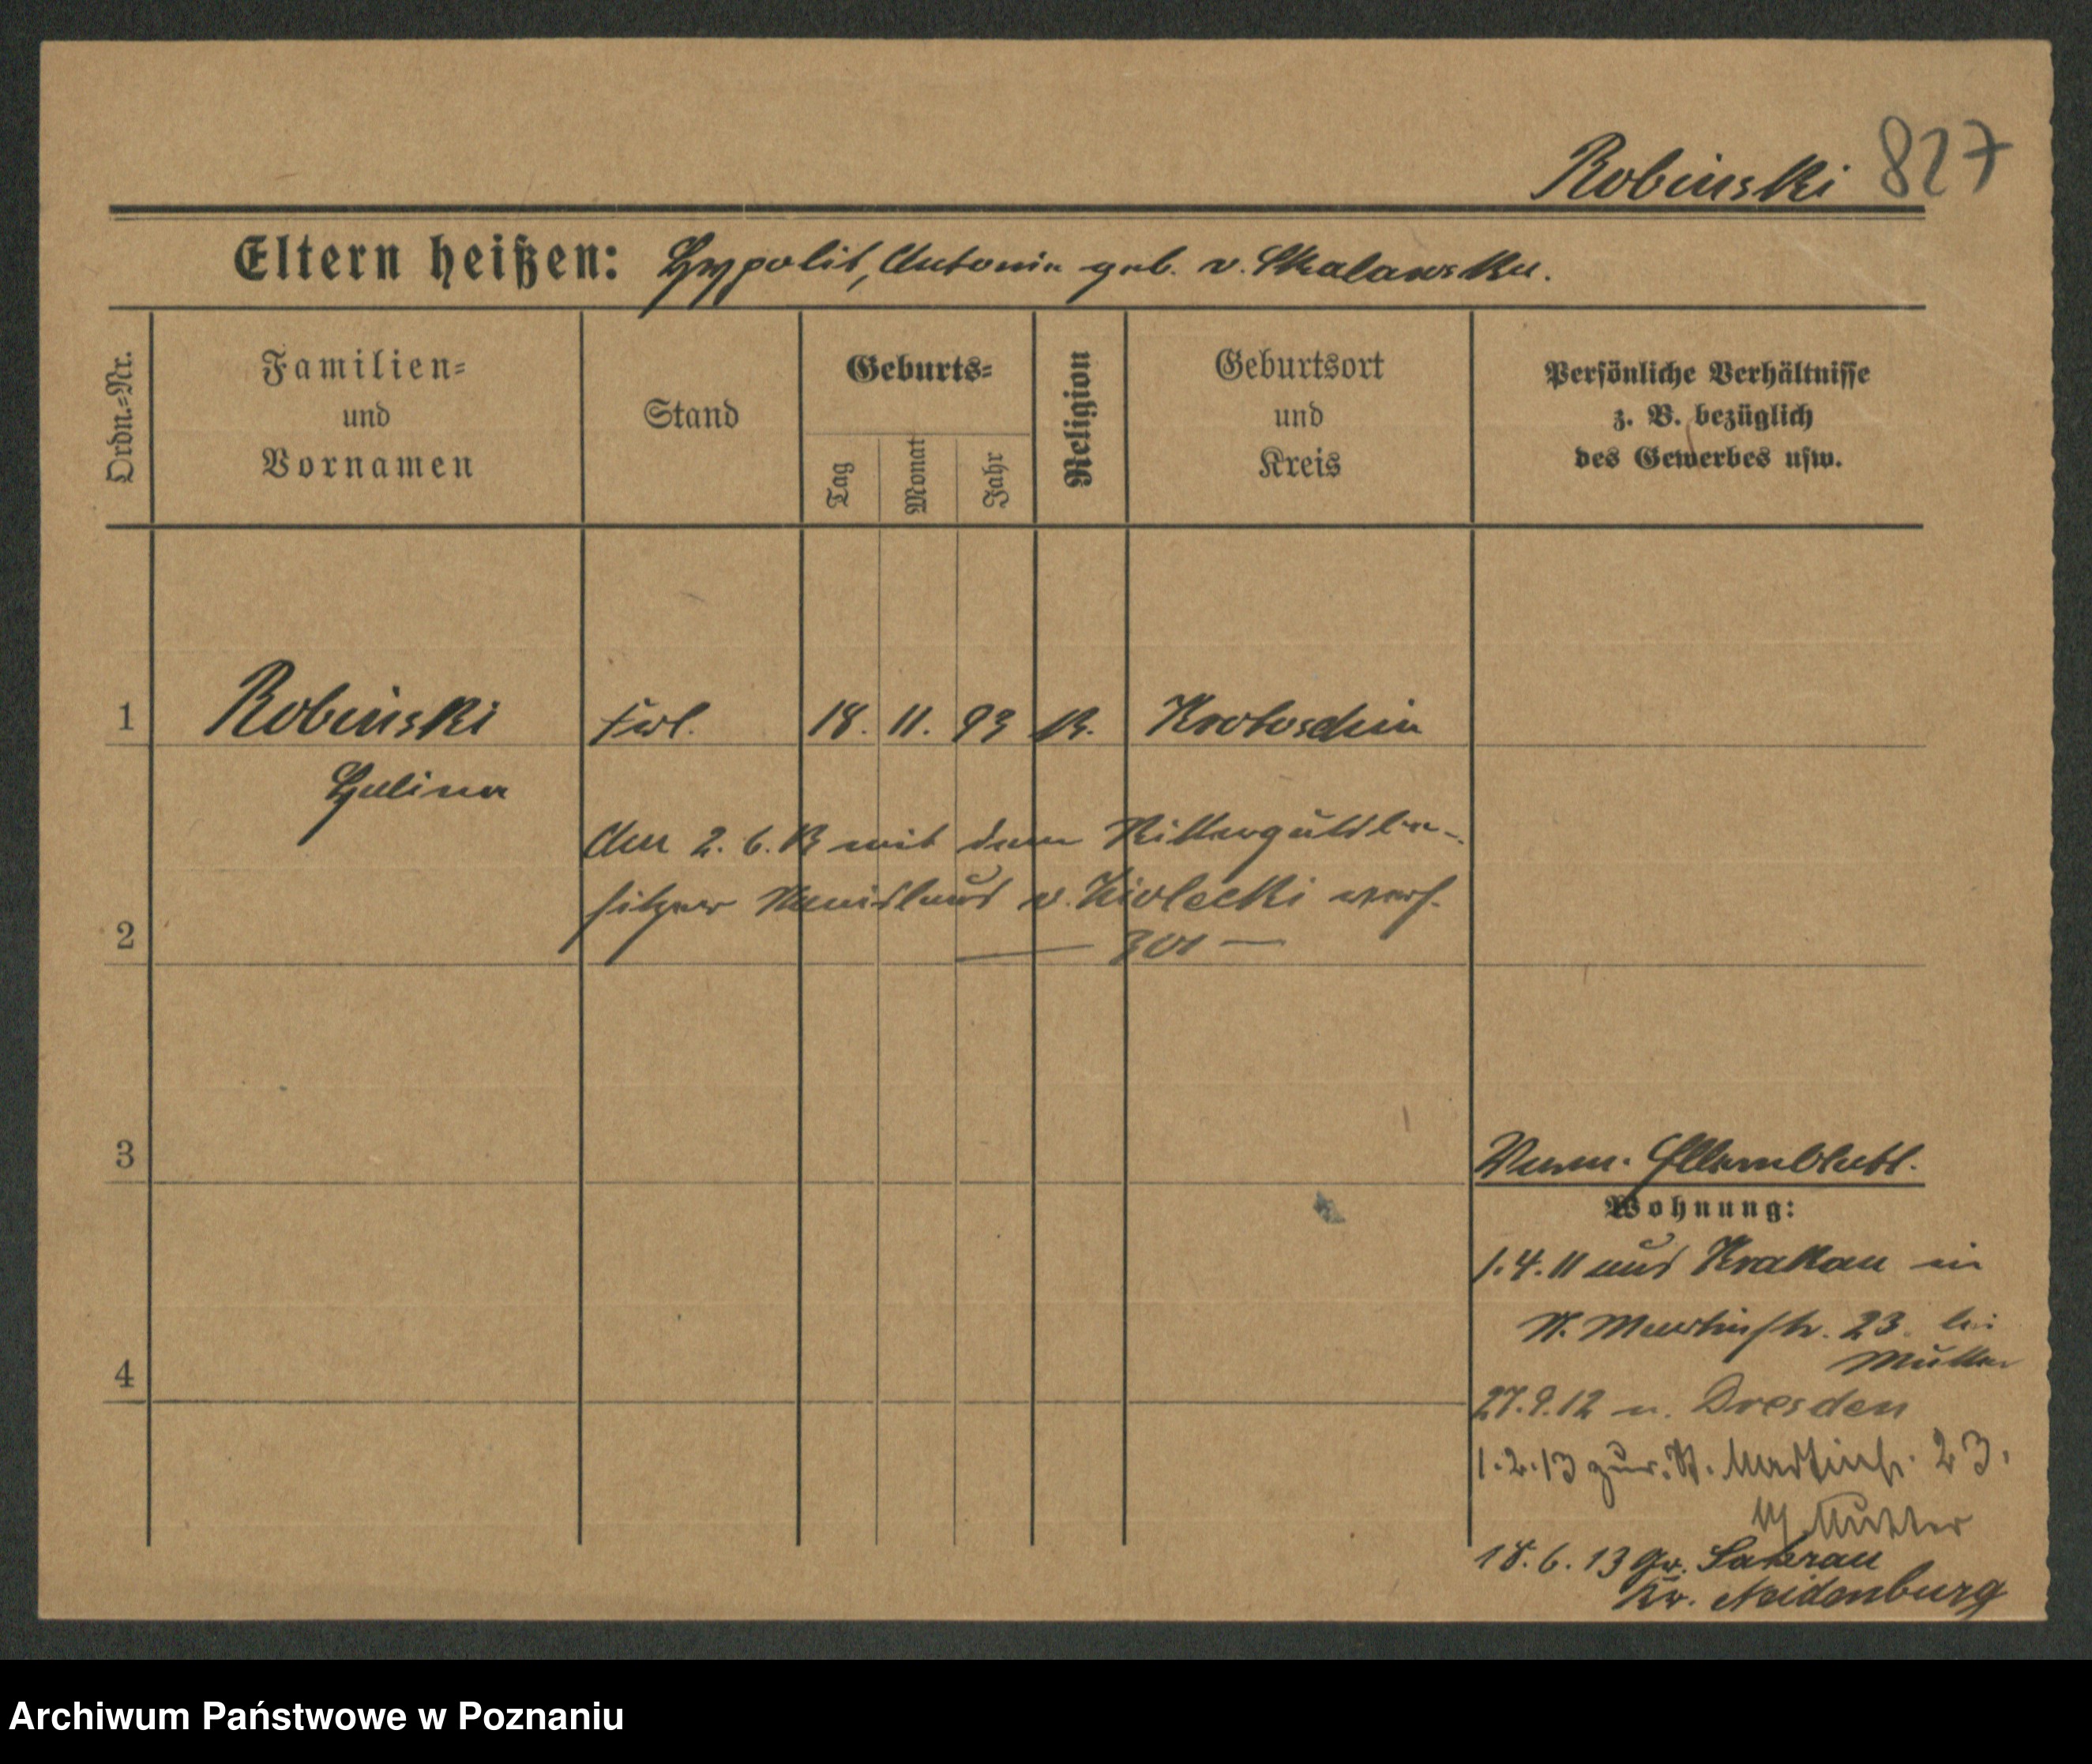 Robinski 827
Eltern heißen: Hypolit, Antonie geb. v. Skalawska.
Ordn.-Nr.
Familien- und Vornamen
Stand
Geburts-
Tag
Monat
Jahr
Religion
Geburtsort und Kreis
Persönliche Verhältnisse z. B. bezüglich des Gewerbes usw.
1 Robinski 18. 11. 93 K. Krotoschin
Halina
Am 2. 6. 13 mit dem Rittergutsbe-
sitzer v. verh.
2
3
Wohnung:
1.4.11 aus Krakau in
St. Martinstr. 23 bei
Mutter
4
27.9.12 n. Dresden
1.2.13 zur. St. Martinstr. 23.
b/ Mutter
18.6.13 Gr. Sakrau
Kr. Neidenburg
Archiwum Państwowe w Poznaniu